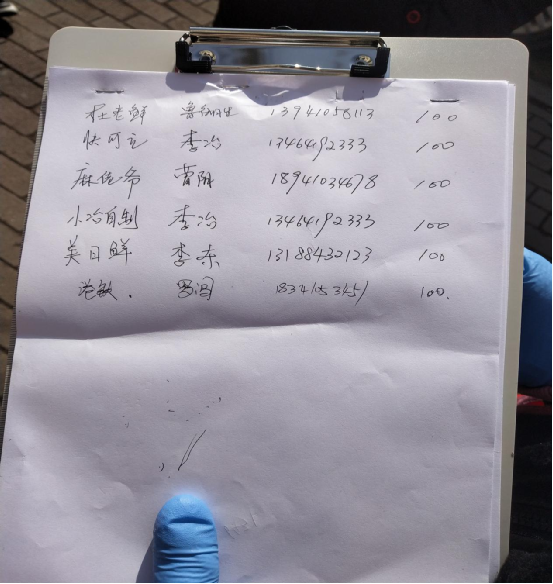 杜老鲜 鲁 13941058113 100
快可立 李冶 13464192333 100
麻佐爷 曹阳 18941034678 100
小冶自制 李冶 13464192333 100
美日鲜 李东 13188432123 100
100.